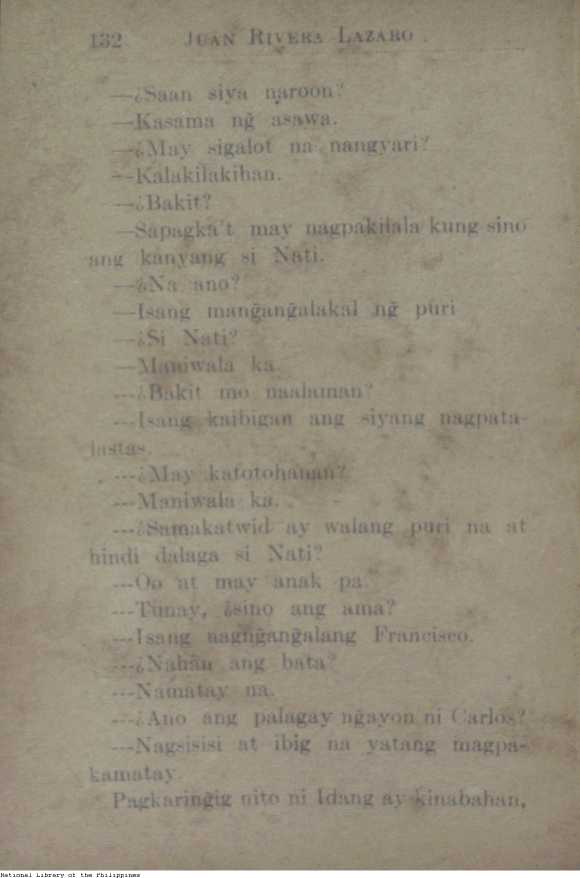 132 JUAN RIVERA LAZARO
—¿Saan siya naroon?
—Kasama ng̃ asawa.
—¿May sigalot na nangyari?
—Kalakilakihan.
—¿Bakit?
—Sapagka't may nagpakilala kung sino
ang kanyang si Nati.
—¿Na ano?
—Isang mang̃ang̃alakal ng̃ puri
—¿Si Nati?
—Maniwala ka.
—¿Bakit mo naalaman?
—Isang kaibigan ang siyang nagpata-
lastas.
—¿May katotohanan?
—Maniwala ka.
—¿Samakatwid ay walang puri na at
hindi dalaga si Nati?
—Oo at may anak pa.
—Tunay, ¿sino ang ama?
—Isang nagng̃ang̃alang Francisco.
—¿Nahan ang bata?
—Namatay na.
—¿Ano ang palagay ng̃ayon ni Carlos?
—Nagsisisi at ibig na yatang magpa-
kamatay.
Pagkaring̃ig nito ni Idang ay kinabahan,
National Library of the Philippines